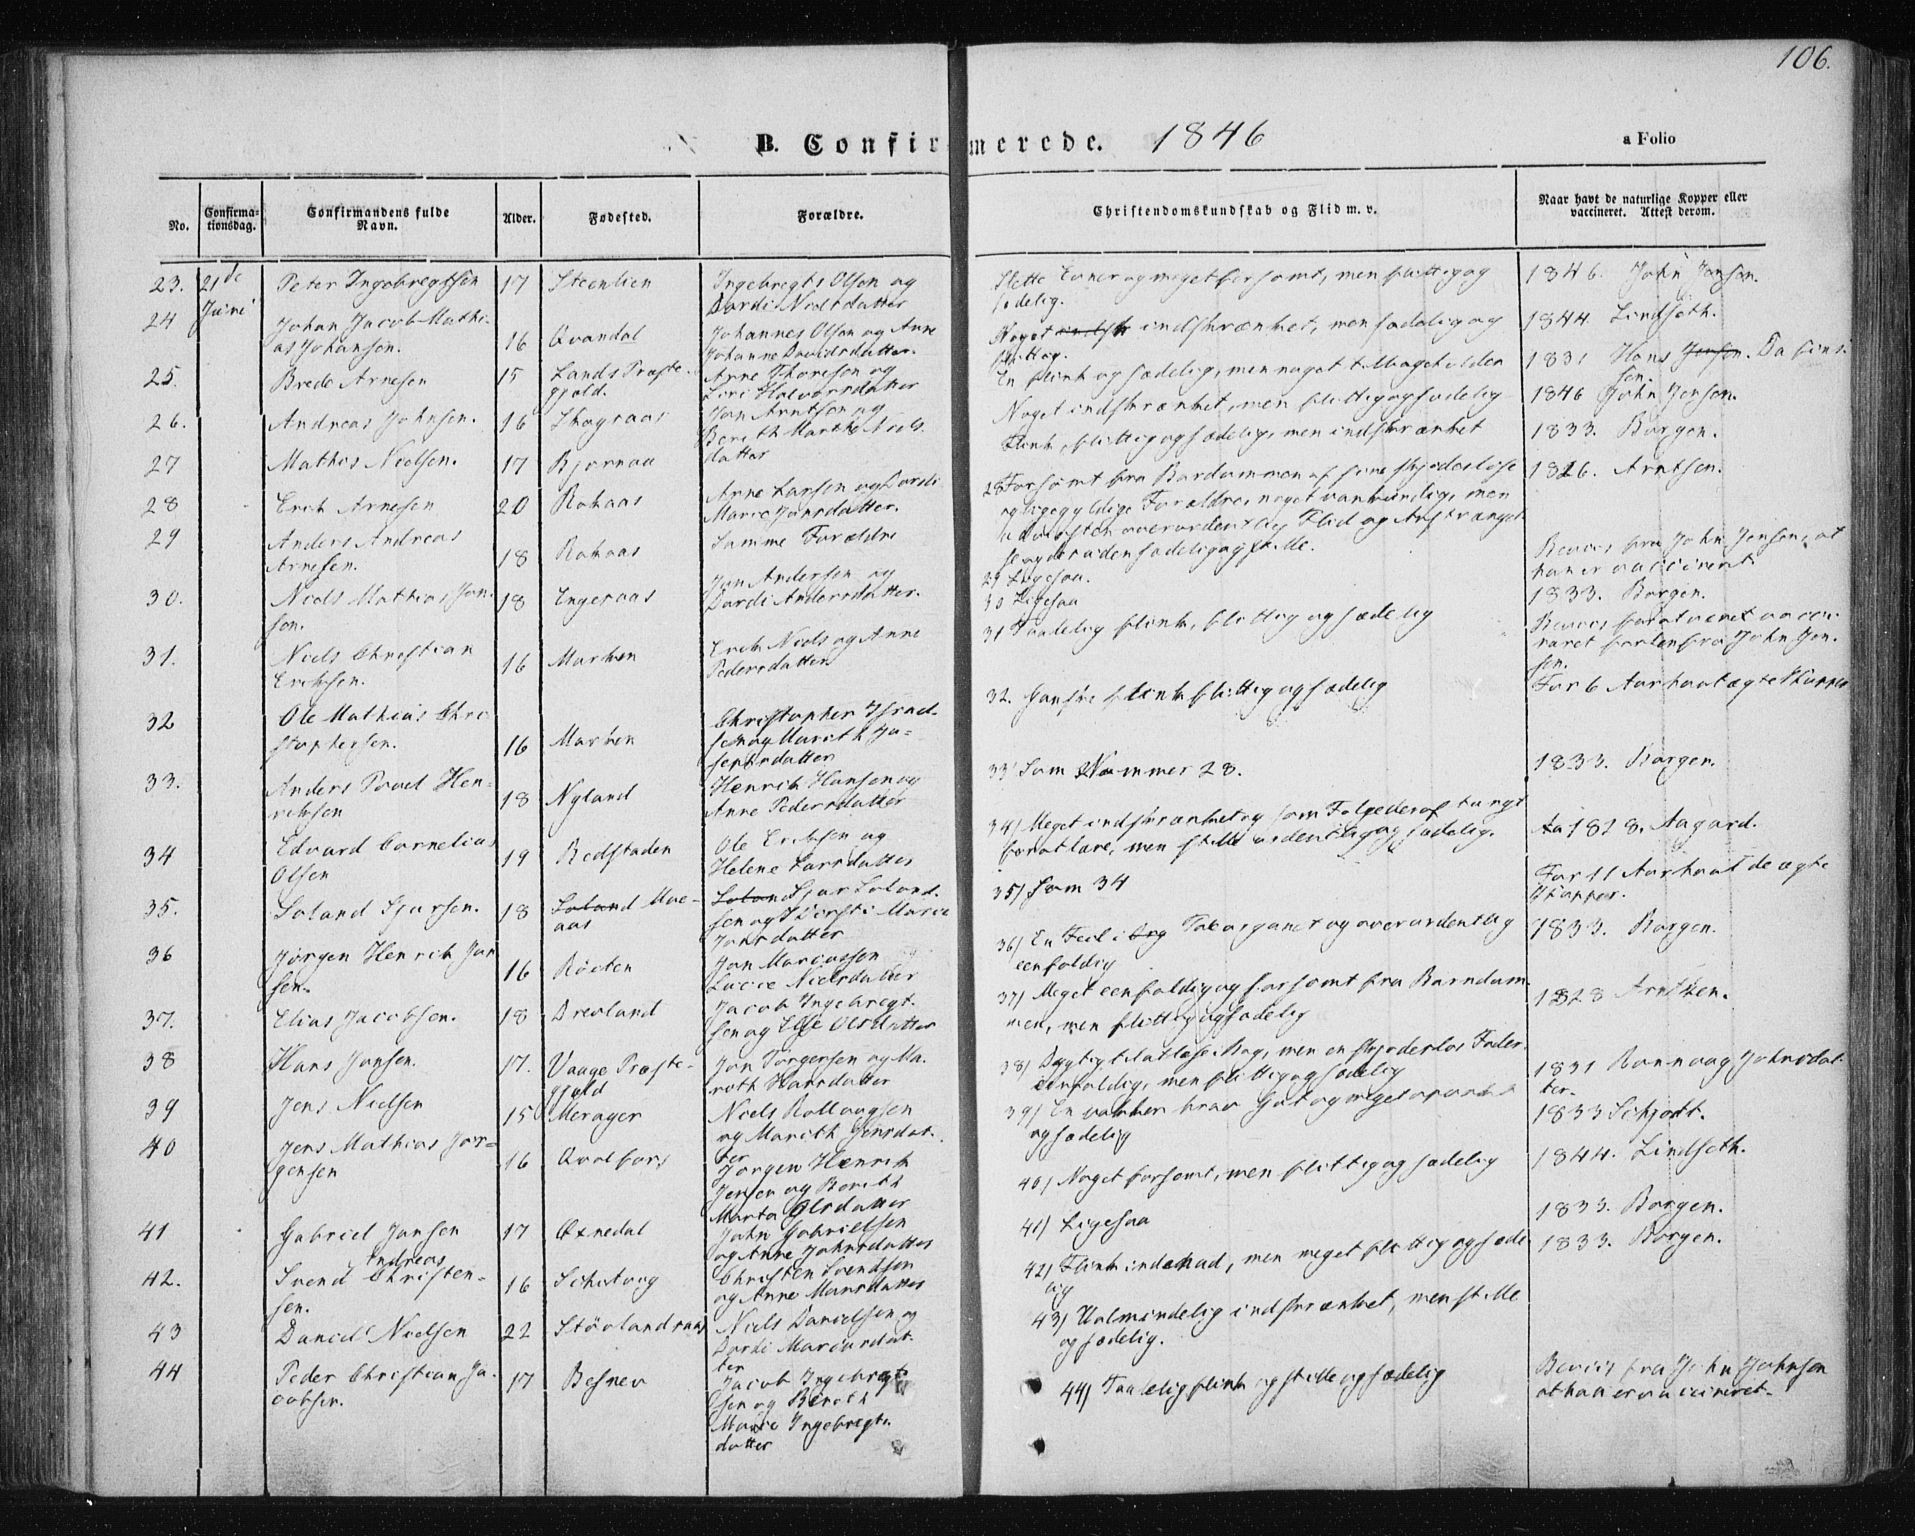 106.
B. Confirmerede. 1846
a Folio
No.
Confirma-
tionsdag.
Confirmandens fulde
Navn.
Alder.
Fødested.
Forældre.
Christendomskundskab og Flid m. v.
Naar havt de naturlige Kopper eller
vaccineret. Attest derom.
23. 21de
Juni
Peter Ingebregtsen
17
Steenlien
Ingebregt Olsen og
Dordi Nielsdatter
Slette Evner og meget forsømt, men flittig og
sædelig.
1846. John Jensen.
24
Johan Jacob Mathi-
as Johansen.
16
Qvandal
Johannes Olsen og Anne
Johanne Davidsdatter.
Noget indskrænket, men sædelig og
flittig.
1844. Lindseth.
25.
Brede Arnesen
15
Lands Præste-
gjeld.
Arne Thoresen og
Siri Halvorsdatter
En flink og sædelig, men noget tilbageholden
1831 Hans Jensen.
26.
Andreas Johnsen.
16
Skograas
Jon Arntsen og
Berith Marthe Niels
datter
Noget indskrænket, men flittig og sædelig
1846 John Jensen.
27
Mathis Nielsen.
17
Bjørnaa
Flink, flittig og sædelig, men indskrænket
1833. Borgen.
28
Erik Arnesen
20
Rohaas
Arne Larsen og Dordi
Marie Jonsdatter.
28 Forsømt fra Barndommen af sine skjødesløse
og ligegyldige Forældre, noget vankundig, men
udviist en overordentlig Flid og Anstrængel
se og desuden sædelig og stille.
1826. Arntsen.
29
Anders Andreas
Arnesen.
18
Rohaas
Samme Forældre
29 Ligesaa.
Beviis fra John Jensen, at
han er vaccineret
30.
Niels Mathias Jon-
sen.
18
Engeraas
Jon Andersen og
Dordi Andersdatter.
30 Ligesaa
1833. Borgen.
31.
Niels Christian
Eriksen.
16
Marken
Erik Niels og Anne
Pedersdatter
31 Taalelig flink, flittig og sædelig
Beviis for at være vacci
neret fra John Jen-
sen.
32
Ole Mathias Chri
stophersen.
16
Marken
Christopher Israel-
sen og Marith Jo-
sephsdatter
32. Ganske flink flittig og sædelig
For 6 Aar havt ægte Kopper
33.
Anders Povel Hen-
riksen
18
Nyland
Henrik Hansen og
Anne Pedersdatter
33 Som Nummer 28.
1833. Borgen.
34
Edvard Cornelius
Olsen
19
Redstaden
Ole Eriksen og
Helene Larsdatter
34) Meget indskrænket og som Følge deraf tungt
for at lære, men stille ordentlig og sædelig.
Aa 1828. Aagard.
35.
Soland Sjursen.
18
Soland Moe-
aas
Soland Sjur Soland-
sen og Kirsti Marie
Jonsdatter
35) Som 34
For 11 Aar havt de ægte
Kopper.
36
Jørgen Henrik Jon
sen.
16
Røsten
Jon Marcussen
Lucie Nielsdatter
36) En Feil i Taleorganet og overordentlig
eenfoldig
1833. Borgen.
37.
Elias Jacobsen.
18
Drevland
Jacob Ingebregt-
sen og Else Olsdatter
37) Meget eenfoldig og forsømt fra Barndom
men, men flittig og sædelig
1828 Arntzen.
38
Hans Jonsen.
17.
Vaage Præste-
gjeld
Jon Jørgensen og Ma-
rith Hansdatter
38) Dygtig til at læse i Bog, men en skjødesløs Fader.
eenfoldig, men flittig og sædelig
1831 Rannvaag Johnsdat-
ter.
39
Jens Nielsen
15
Merager
Niels Rollaugsen
og Marith Jensdat-
ter
39) En vakker brav Gut og meget
og sædelig
1833 Schjødt.
40
Jens Mathias Jør-
gensen
16
Qvalfors
Jørgen Henrik
Jensen og Berith
Marta Olsdatter
40) Noget forsømt, men flittig og sædelig
1844. Lindseth.
41
Gabriel Jonsen
17
Oxnedal
John Gabrielsen
og Anne Johnsdatter
41) Ligesaa
1833. Borgen.
42.
Svend Andreas Christen-
sen.
16
Christen Svendsen
og Anne Monsdatter
42) Flink, men meget flittig og sæde
lig
1833. Borgen.
43
Daniel Nielsen
22
Støvlandsaas
Niels Danielsen og
Dordi Marcusdat-
ter
43) Ualmindelig indskrænket, men stille
og sædelig.
44
Peder Christian Ja-
cobsen.
17
Besnev
Jacob Ingebregt
sen og Berith
Marie Ingebregts
datter
44) Taalelig flink og stille og sædelig
Beviis fra John Johnsen
at han er vaccineret.